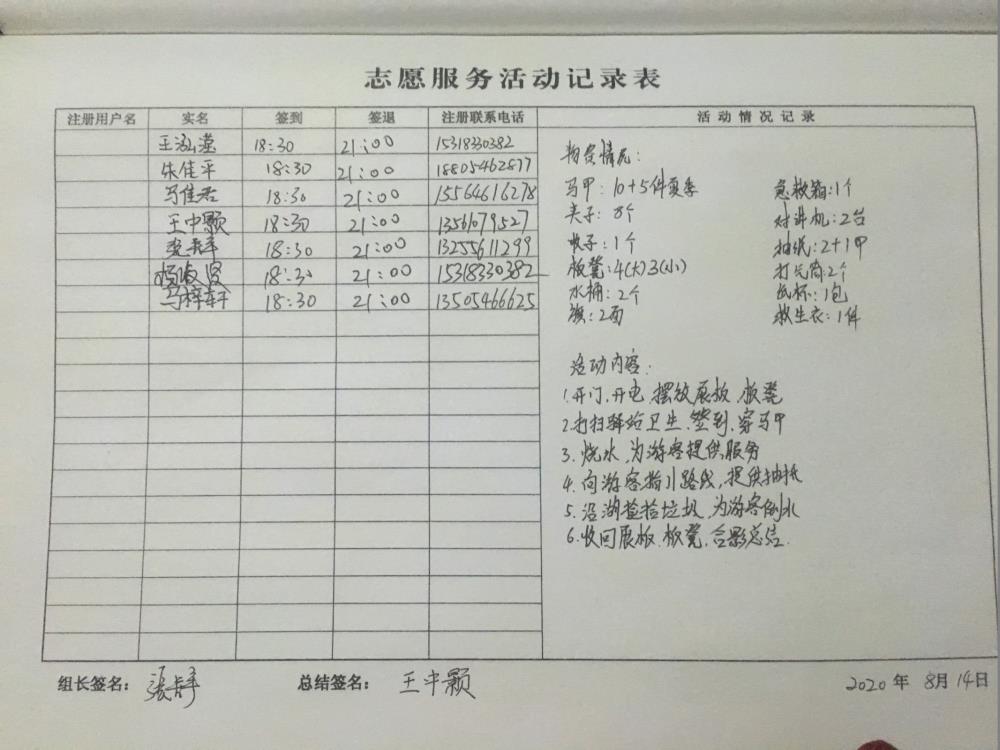 志愿服务活动记录表
注册用户名 实名 签到 签退 注册联系电话 活动情况记录
王泓滢 18:30 21:00 15318330382
朱佳平 18:30 21:00 18805462877
马佳君 18:30 21:00 15564616278
王中颢 18:30 21:00 13561079527
18:30 21:00 13255611299
18:30 21:00 15318330382
马梓轩 18:30 21:00 13505466625
物资情况:
马甲:10+5件夏季 急救箱:1个
夹子:8个 对讲机:2台
蚊子:1个 抽纸:2+1甲
板凳:4(大)3(小) 打气筒:2个
水桶:2个 纸杯:1包
旗:2面 救生衣:1件
活动内容:
1.开门,开电,摆放展板,板凳
2.打扫驿站卫生,签到,穿马甲
3.烧水,为游客提供服务
4.向游客指引路线,提供抽纸
5.沿湖捡拾垃圾,为游客倒水
6.收回展板,板凳,合影总结.
组长签名: 总结签名: 王中颢 2020年 8月14日